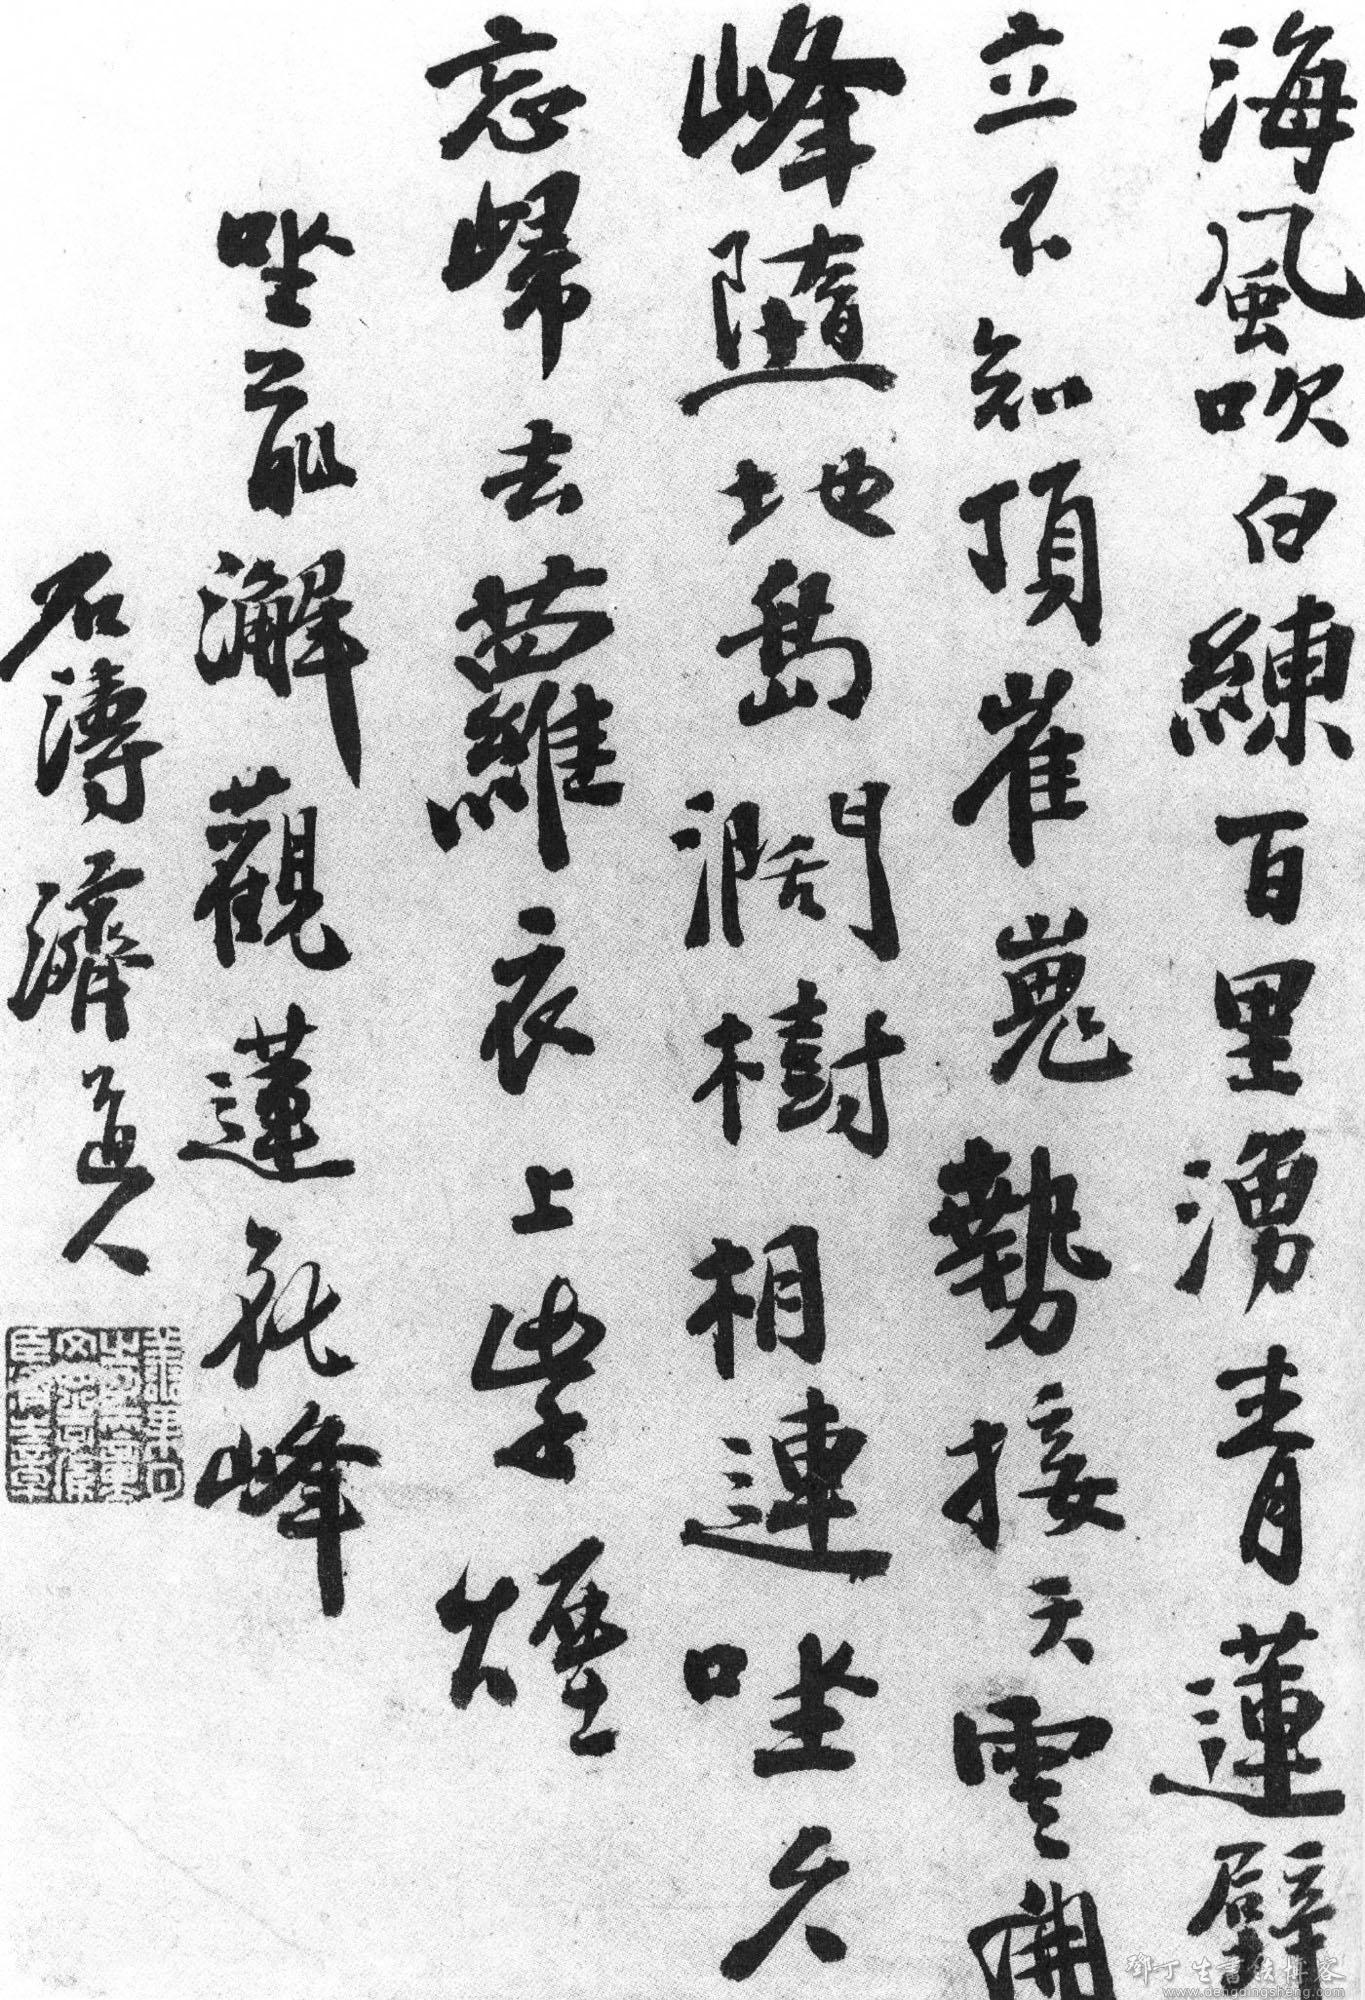 海風吹白練百里湧青蓮壁
立不知頂崔嵬勢接天雲開
峰隨地島濶樹相連坐久
忘歸去蘿衣上紫煙
坐前澥觀蓮花峰
石濤濟道人
鄧丁生書法博客
www.dengdingsheng.com